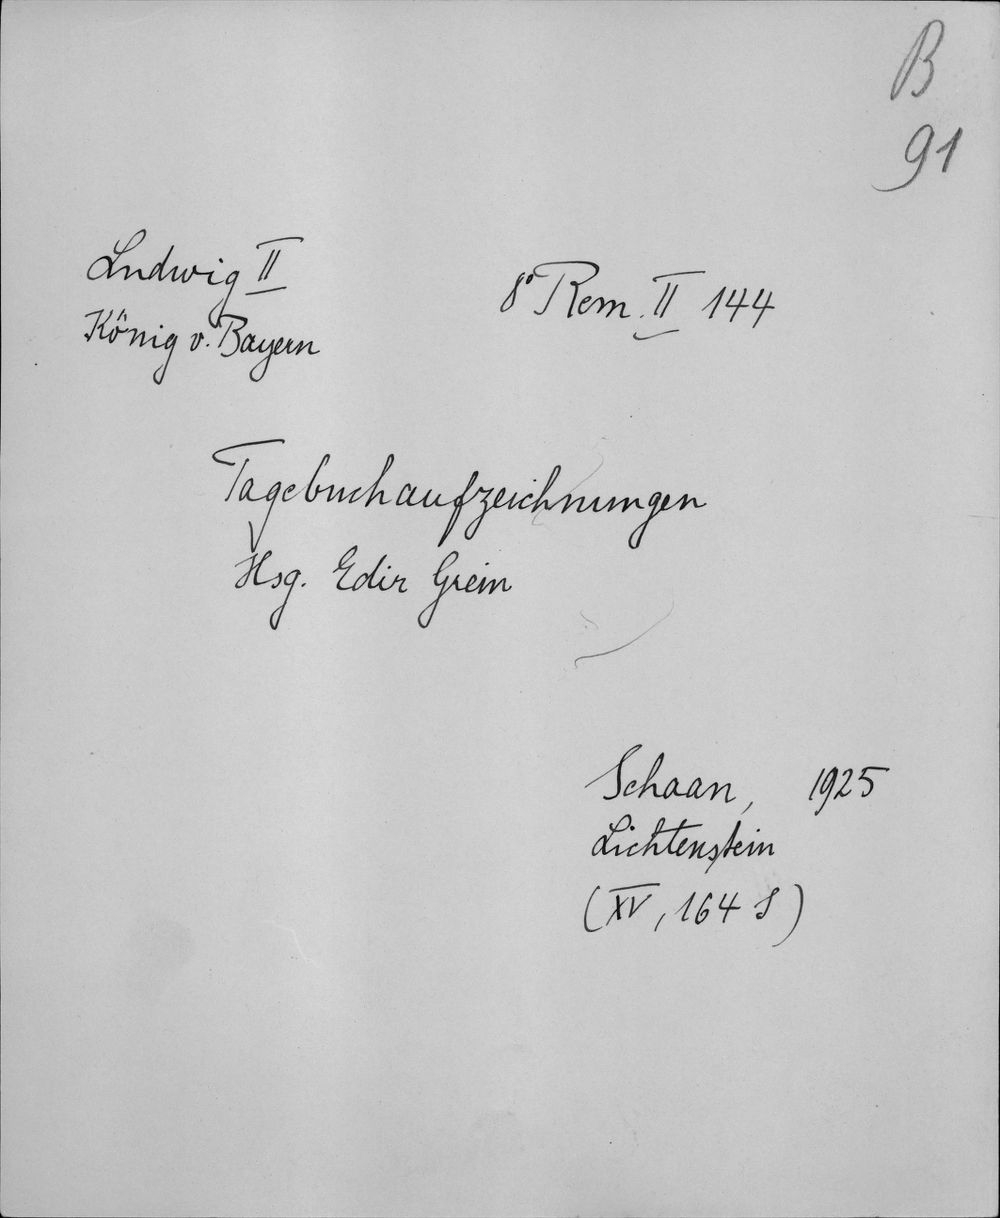 B
91
Ludwig II
König v. Bayern
8° Rem. II 144
Tagebuchaufzeichnungen
Hsg. Edir Grein
Schaan, 1925
Lichtenstein
(XV, 164 S)